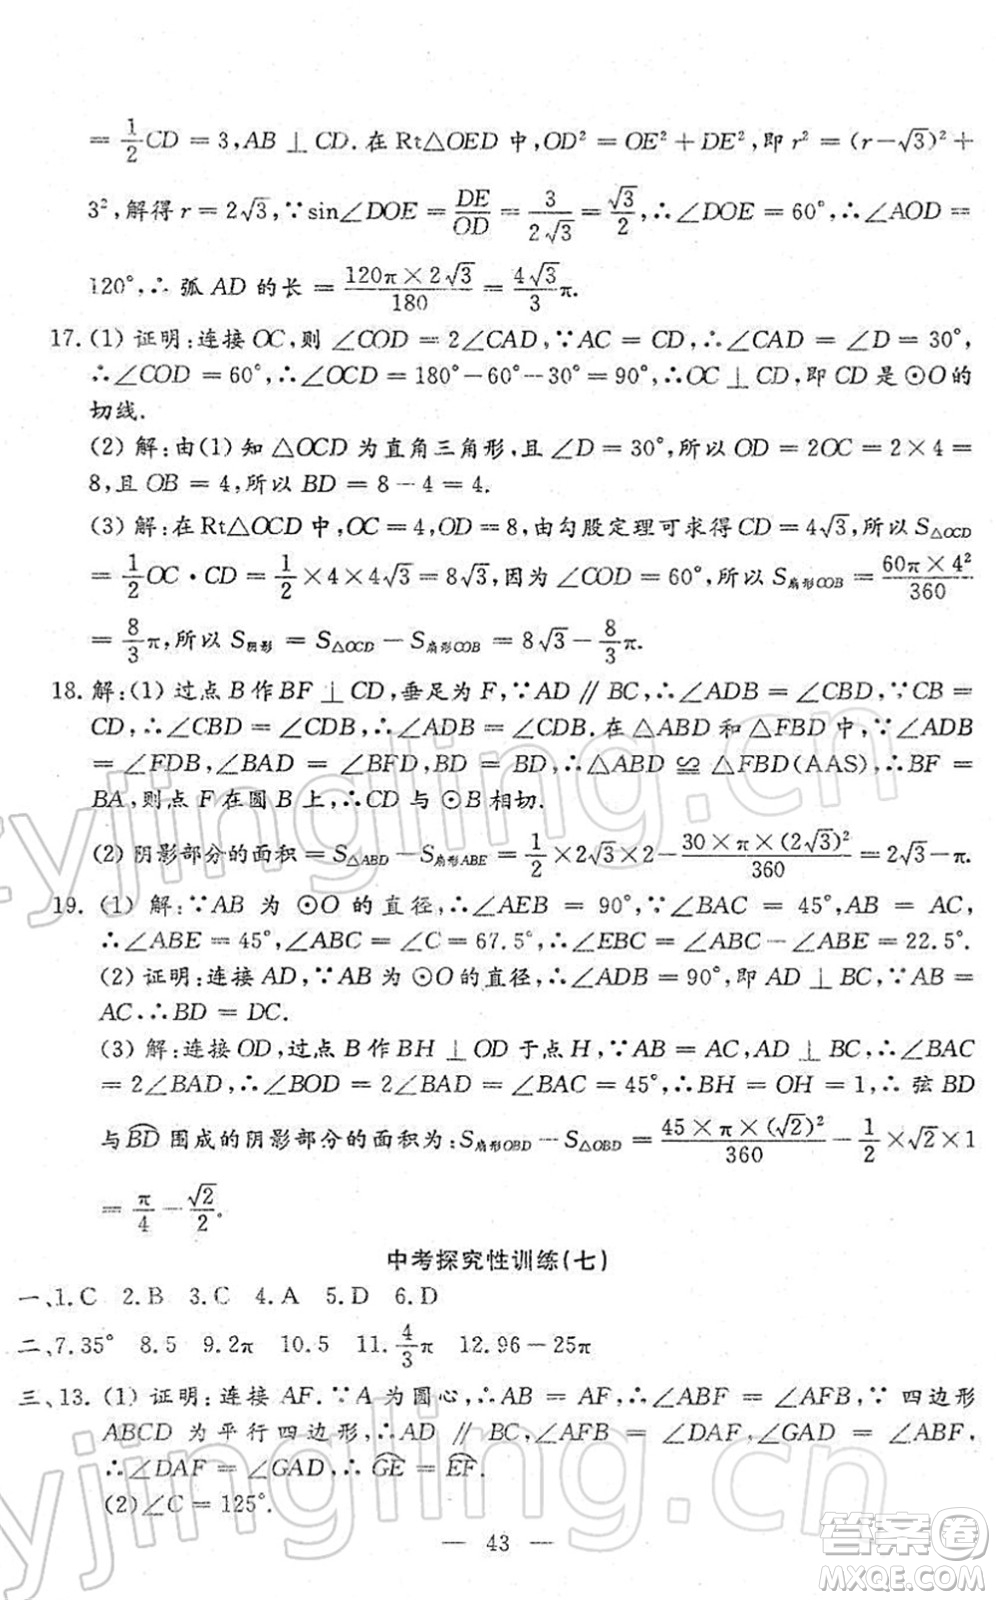 = 1/2 CD = 3, AB ⊥ CD. 在 Rt△OED 中, OD² = OE² + DE², 即 r² = (r-√3)² +
3², 解得 r = 2√3, ∵ sin∠DOE = DE/OD = 3/(2√3) = √3/2, ∴∠DOE = 60°, ∴∠AOD =
120°, ∴ 弧 AD 的长 = (120π × 2√3)/180 = (4√3)/3 π.
17. (1) 证明: 连接 OC, 则 ∠COD = 2∠CAD, ∵ AC = CD, ∴∠CAD = ∠D = 30°,
∴∠COD = 60°, ∴∠OCD = 180°-60°-30° = 90°, ∴OC ⊥ CD, 即 CD 是 ⊙O 的
切线.
(2) 解: 由(1) 知 △OCD 为直角三角形, 且 ∠D = 30°, 所以 OD = 2OC = 2 × 4 =
8, 且 OB = 4, 所以 BD = 8 - 4 = 4.
(3) 解: 在 Rt△OCD 中, OC = 4, OD = 8, 由勾股定理可求得 CD = 4√3, 所以 S△OCD
= 1/2 OC · CD = 1/2 × 4 × 4√3 = 8√3, 因为 ∠COD = 60°, 所以 S扇形COB = (60π × 4²)/360
= 8/3 π, 所以 S阴影 = S△OCD - S扇形COB = 8√3 - 8/3 π.
18. 解: (1) 过点 B 作 BF ⊥ CD, 垂足为 F, ∵ AD ∥ BC, ∴∠ADB = ∠CBD, ∵ CB =
CD, ∴∠CBD = ∠CDB, ∴∠ADB = ∠CDB. 在 △ABD 和 △FBD 中, ∵ ∠ADB
= ∠FDB, ∠BAD = ∠BFD, BD = BD, ∴△ABD ≌ △FBD(AAS), ∴BF =
BA, 则点 F 在圆 B 上, ∴CD 与 ⊙B 相切.
(2) 阴影部分的面积 = S△ABD - S扇形ABE = 1/2 × 2√3 × 2 - (30 × π × (2√3)²)/360 = 2√3 - π.
19. (1) 解: ∵ AB 为 ⊙O 的直径, ∴∠AEB = 90°, ∵∠BAC = 45°, AB = AC,
∴∠ABE = 45°, ∠ABC = ∠C = 67.5°, ∴∠EBC = ∠ABC - ∠ABE = 22.5°.
(2) 证明: 连接 AD, ∵ AB 为 ⊙O 的直径, ∴∠ADB = 90°, 即 AD ⊥ BC, ∵ AB =
AC. ∴BD = DC.
(3) 解: 连接 OD, 过点 B 作 BH ⊥ OD 于点 H, ∵ AB = AC, AD ⊥ BC, ∴∠BAC
= 2∠BAD, ∴∠BOD = 2∠BAD = ∠BAC = 45°, ∴BH = OH = 1, ∴ 弦 BD
与 BD⌢ 围成的阴影部分的面积为: S扇形OBD - S△OBD = (45 × π × (√2)²)/360 - 1/2 × √2 × 1
= π/4 - √2/2.
中考探究性训练(七)
一、1. C 2. B 3. C 4. A 5. D 6. D
二、7. 35° 8. 5 9. 2π 10. 5 11. 4/3 π 12. 96-25π
三、13. (1) 证明: 连接 AF. ∵ A 为圆心, ∴ AB = AF, ∴∠ABF = ∠AFB, ∵ 四边形
ABCD 为平行四边形, ∴AD ∥ BC, ∠AFB = ∠DAF, ∠GAD = ∠ABF,
∴∠DAF = ∠GAD, ∴ GE⌢ = EF⌢.
(2) ∠C = 125°.
— 43 —
答案卷
MXQE.COM
tyjingling.cn
tyjingling.cn